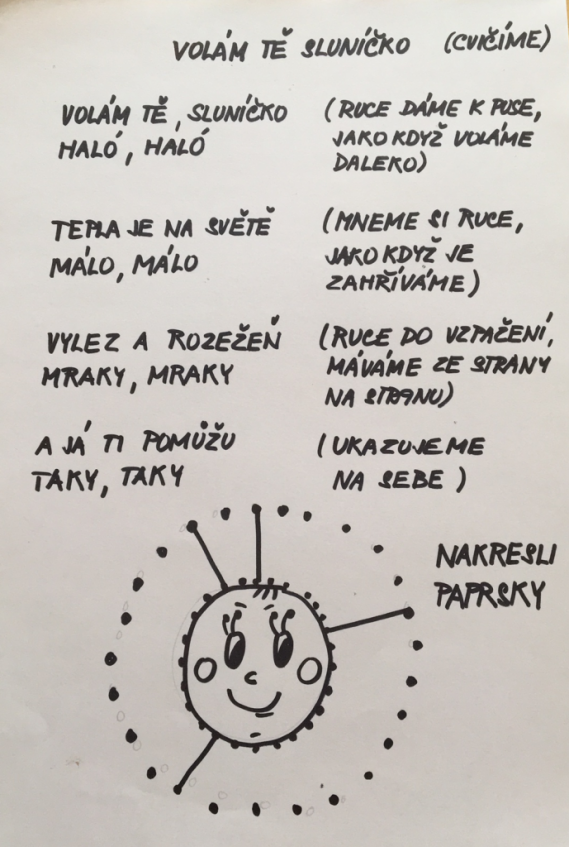 VOLÁM TĚ SLUNÍČKO (CVIČÍME)
VOLÁM TĚ, SLUNÍČKO
HALÓ, HALÓ
(RUCE DÁME K PUSE,
JAKO KDYŽ VOLÁME
DALEKO)
TEPLA JE NA SVĚTĚ
MÁLO, MÁLO
(MNEME SI RUCE,
JAKO KDYŽ JE
ZAHŘÍVÁME)
VYLEZ A ROZEŽEŇ
MRAKY, MRAKY
(RUCE DO VZPAŽENÍ,
MÁVÁME ZE STRANY
NA STRANU)
A JÁ TI POMŮŽU
TAKY, TAKY
(UKAZUJEME
NA SEBE)
NAKRESLI
PAPRSKY